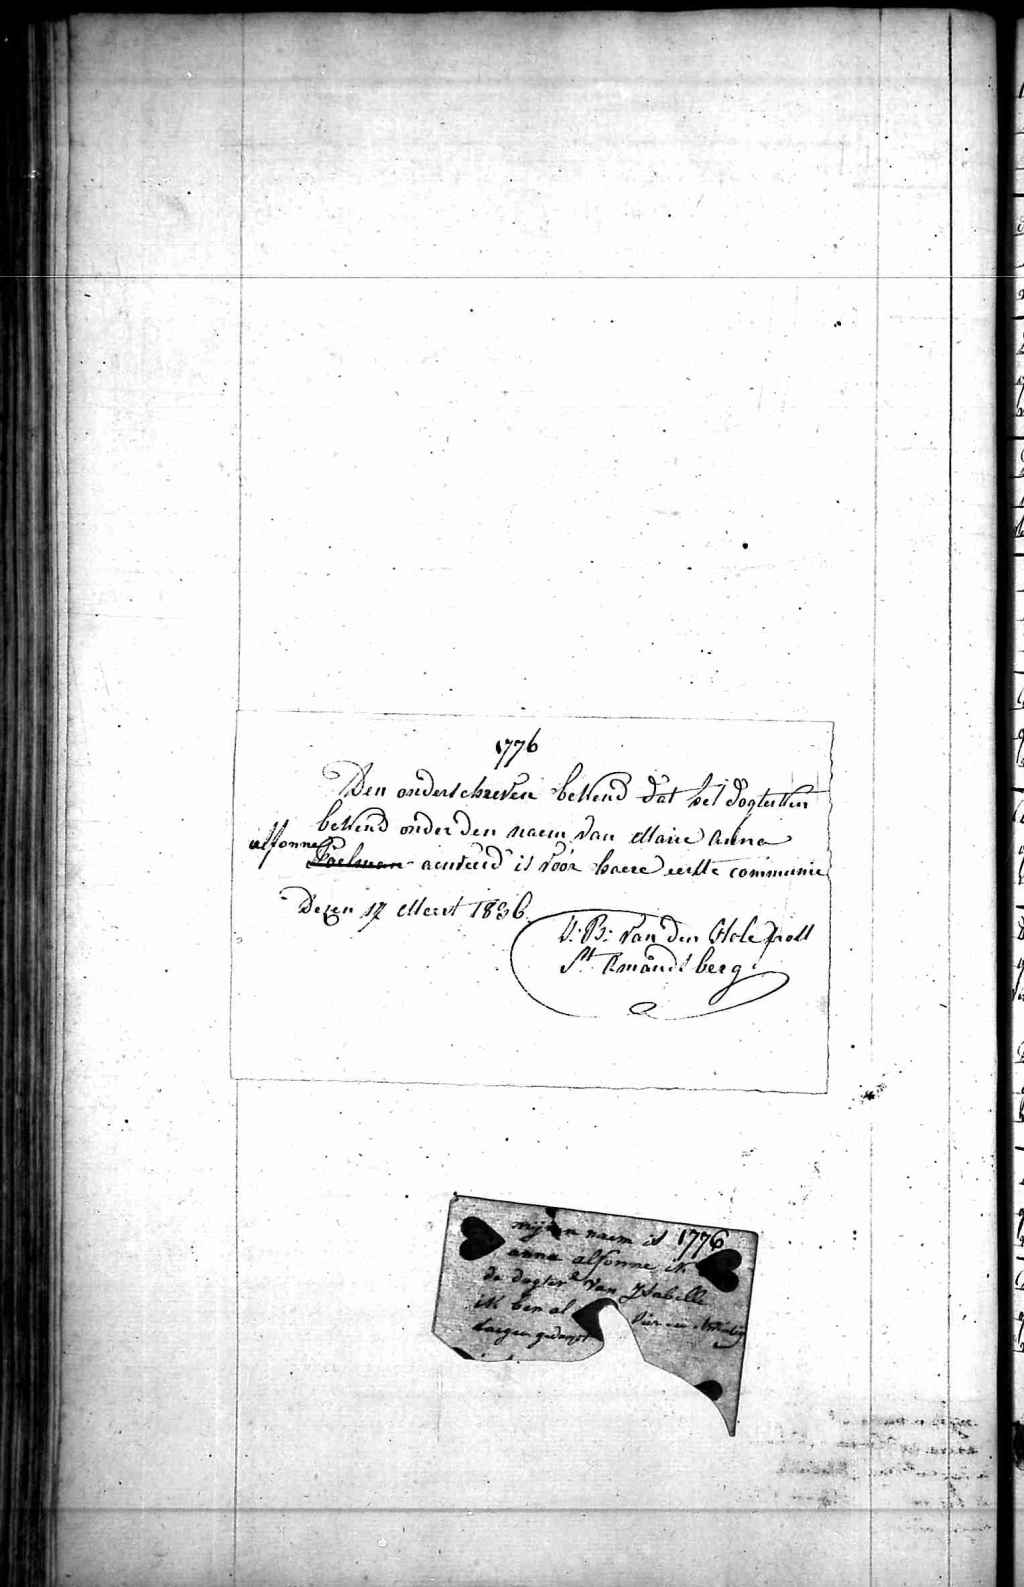 1776
Den onderschreven bekend dat het dogterken
bekend onder den naem van Marie Anna
alfonne
Poelman aenveerd is voor haere eerste communie
Dezen 17 Meert 1836.
J: B: Van den Hole past
St Amandsberg
mijnen naem is 1776
anna alfonne ik
de dogter Van Ysabelle
ik ben al vier en twintig
daegen gedoopt